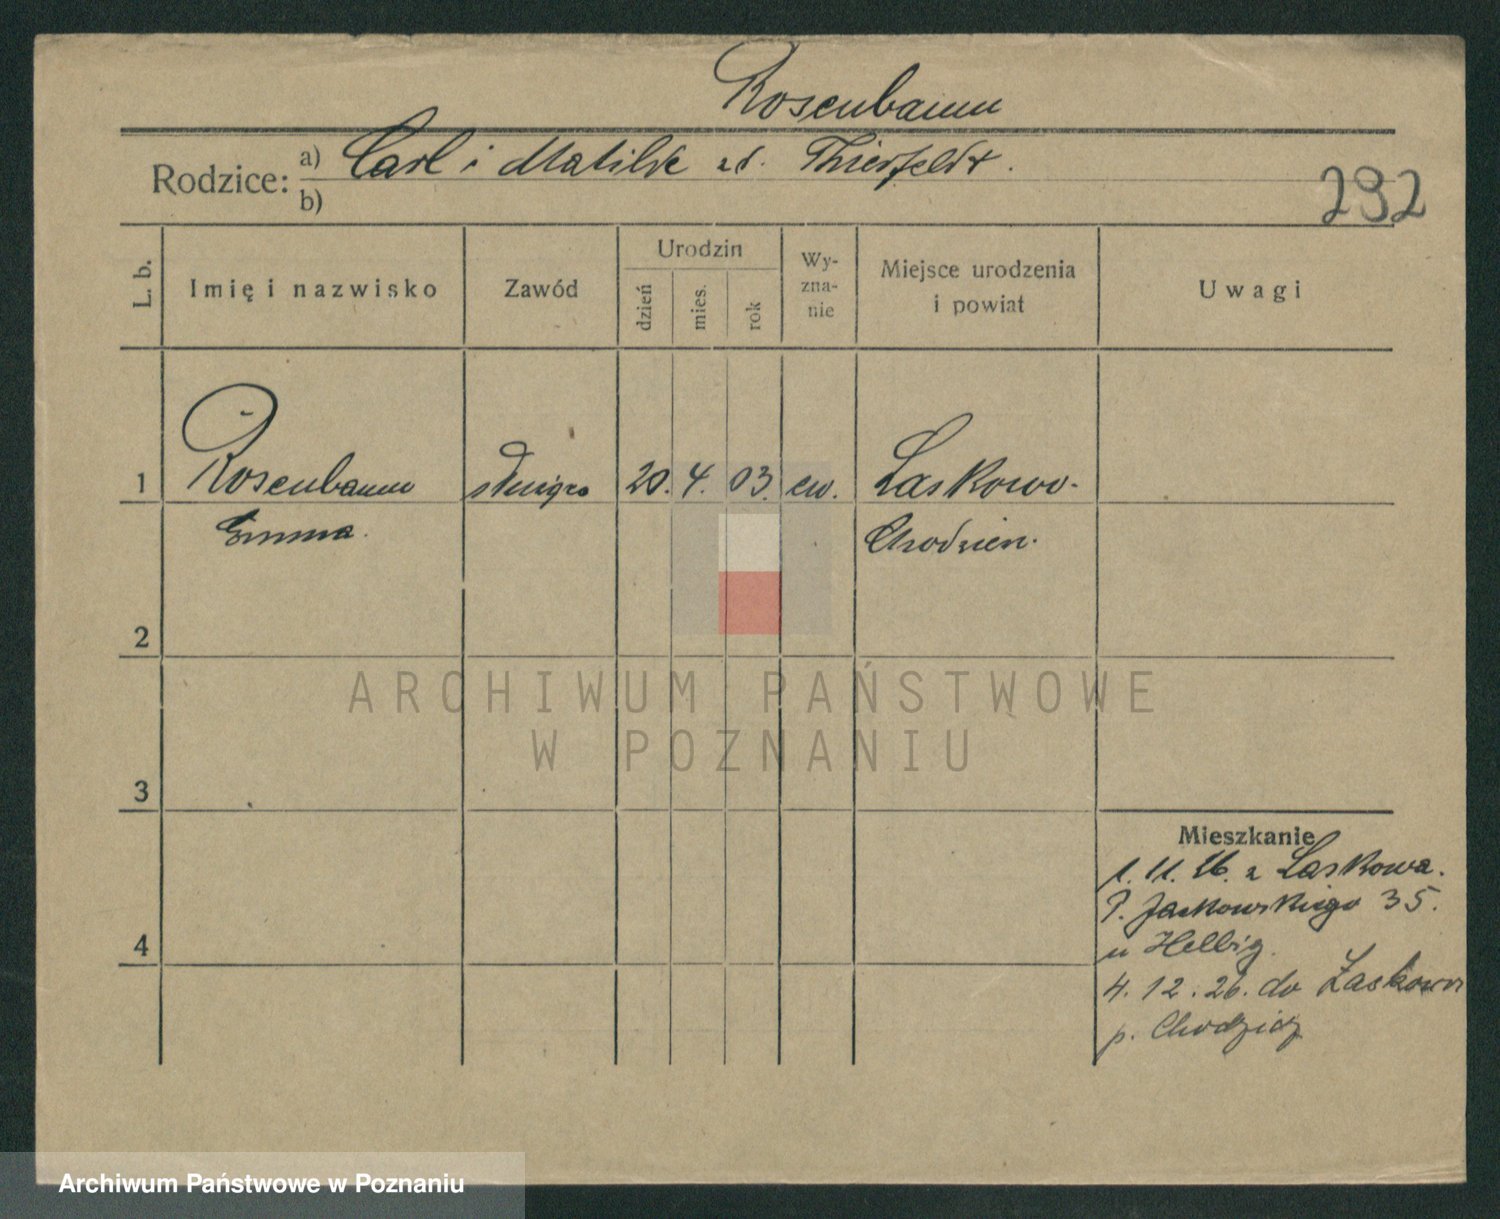 Rosenbaum
Rodzice: a) Carl i Matilde zd. Thierfeldt.
b)
292
L. b.
Imię i nazwisko
Zawód
Urodzin
dzień
mies.
rok
Wy-
zna-
nie
Miejsce urodzenia
i powiat
Uwagi
1 Rosenbaum służąca 20. 4. 03. ew. Laskowo-
Emma. Chodzież.
2
3
4
ARCHIWUM PAŃSTWOWE
W POZNANIU
Mieszkanie
1. 11. 26. z Laskowa.
P. Jackowskiego 35.
u Helbig.
4. 12. 26. do Laskowa
p. Chodzież
Archiwum Państwowe w Poznaniu